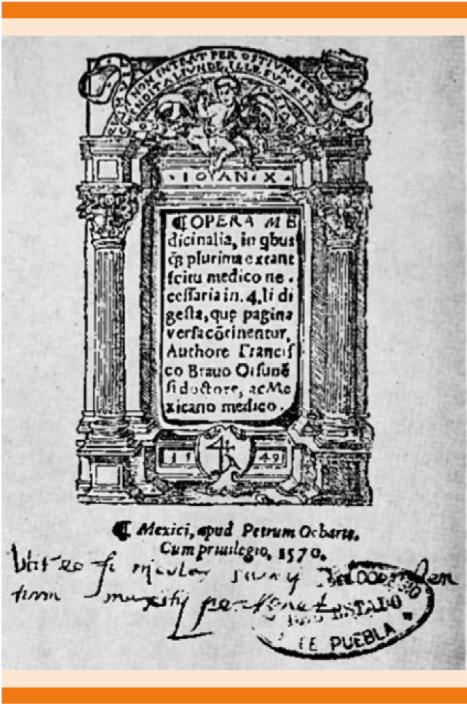 NON INTRAT PER OSTIVM SED
CENDIT ALIVNDE, ILLE FVR EST
· IOAN · X ·
¶OPERA ME
dicinalia, in qbus
q̃ plurima extant
scitu medico ne⸗
cessaria in .4. li di
gesta, quę pagina
versa cõtinentur,
Authore Francis
co Brauo Orsunẽ
si doctore, ac Me
xicano medico.
1549
¶ Mexici, apud Petrum Ocharte.
Cum priuilegio, 1570.
ESTADO
DE PUEBLA